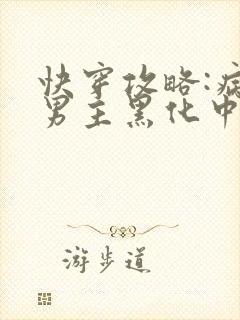 快穿攻略:病
男主黑化中
游步道